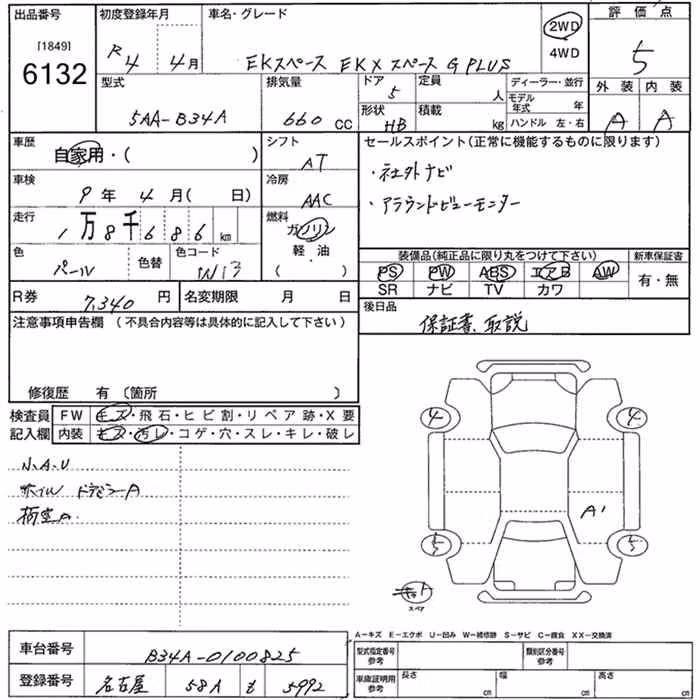 出品番号
[1849]
6132
初度登録年月
R4 4月
車名・グレード
EKスペース EKXスペース G PLUS
2WD
4WD
評価点
5
型式
5AA-B34A
排気量
660 CC
ドア
5
定員
人
形状
HB
積載
kg
ディーラー・並行
モデル年式 年
ハンドル 左・右
外装 内装
A A
車歴
自家用・( )
シフト
AT
セールスポイント(正常に機能するものに限ります)
・社外ナビ
・アラウンドビューモニター
車検
9年 4月( 日)
冷房
AAC
走行
1万8千686km
燃料
ガソリン
軽・油
( )
色
パール
色替
色コード
W13
装備品(純正品に限り丸をつけて下さい)
PS PW ABS エアB AW
SR ナビ TV カワ
新車保証書
有・無
R券
7,340円
名変期限 月 日
後日品
保証書、取説
注意事項申告欄 (不具合内容等は具体的に記入して下さい)
修復歴 有 〔箇所 〕
検査員記入欄
FW キズ・飛石・ヒビ割・リペア跡・X要
内装 キズ・汚レ・コゲ・穴・スレ・キレ・破レ
小A.U
ホイルW ドアミラーA
4 4
A1
5 5
キット
スペア
A-キズ E-エクボ U-凹み W-補修跡 S-サビ C-腐食 XX-交換済
車台番号
B34A-0100825
登録番号
名古屋 581 も 5992
型式指定番号
参考
類別区分番号
参考
車庫証明用
参考
長さ cm
幅 cm
高さ cm